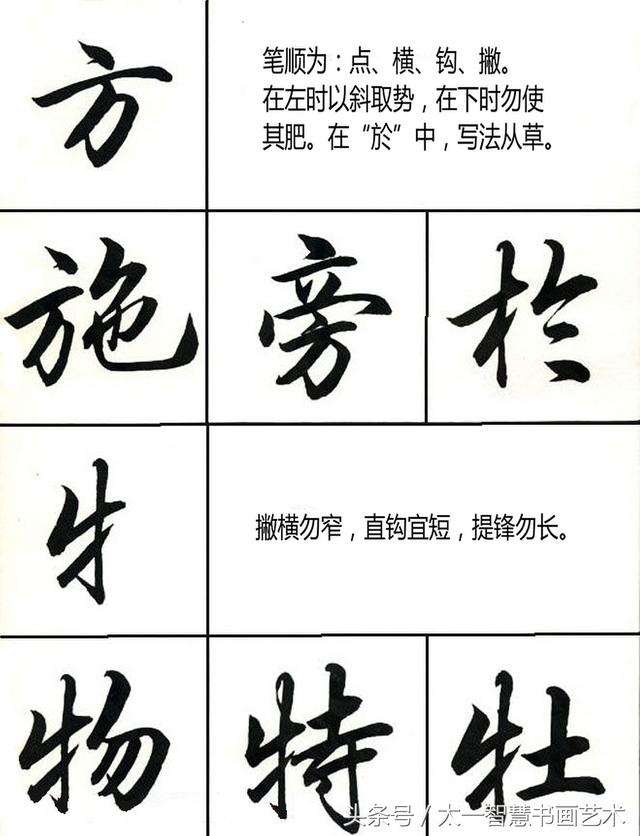 方
笔顺为：点、横、钩、撇。
在左时以斜取势，在下时勿使
其肥。在“於”中，写法从草。
施 旁 於
牜
撇横勿窄，直钩宜短，提锋勿长。
物 特 牡
头条号 / 太一智慧书画艺术